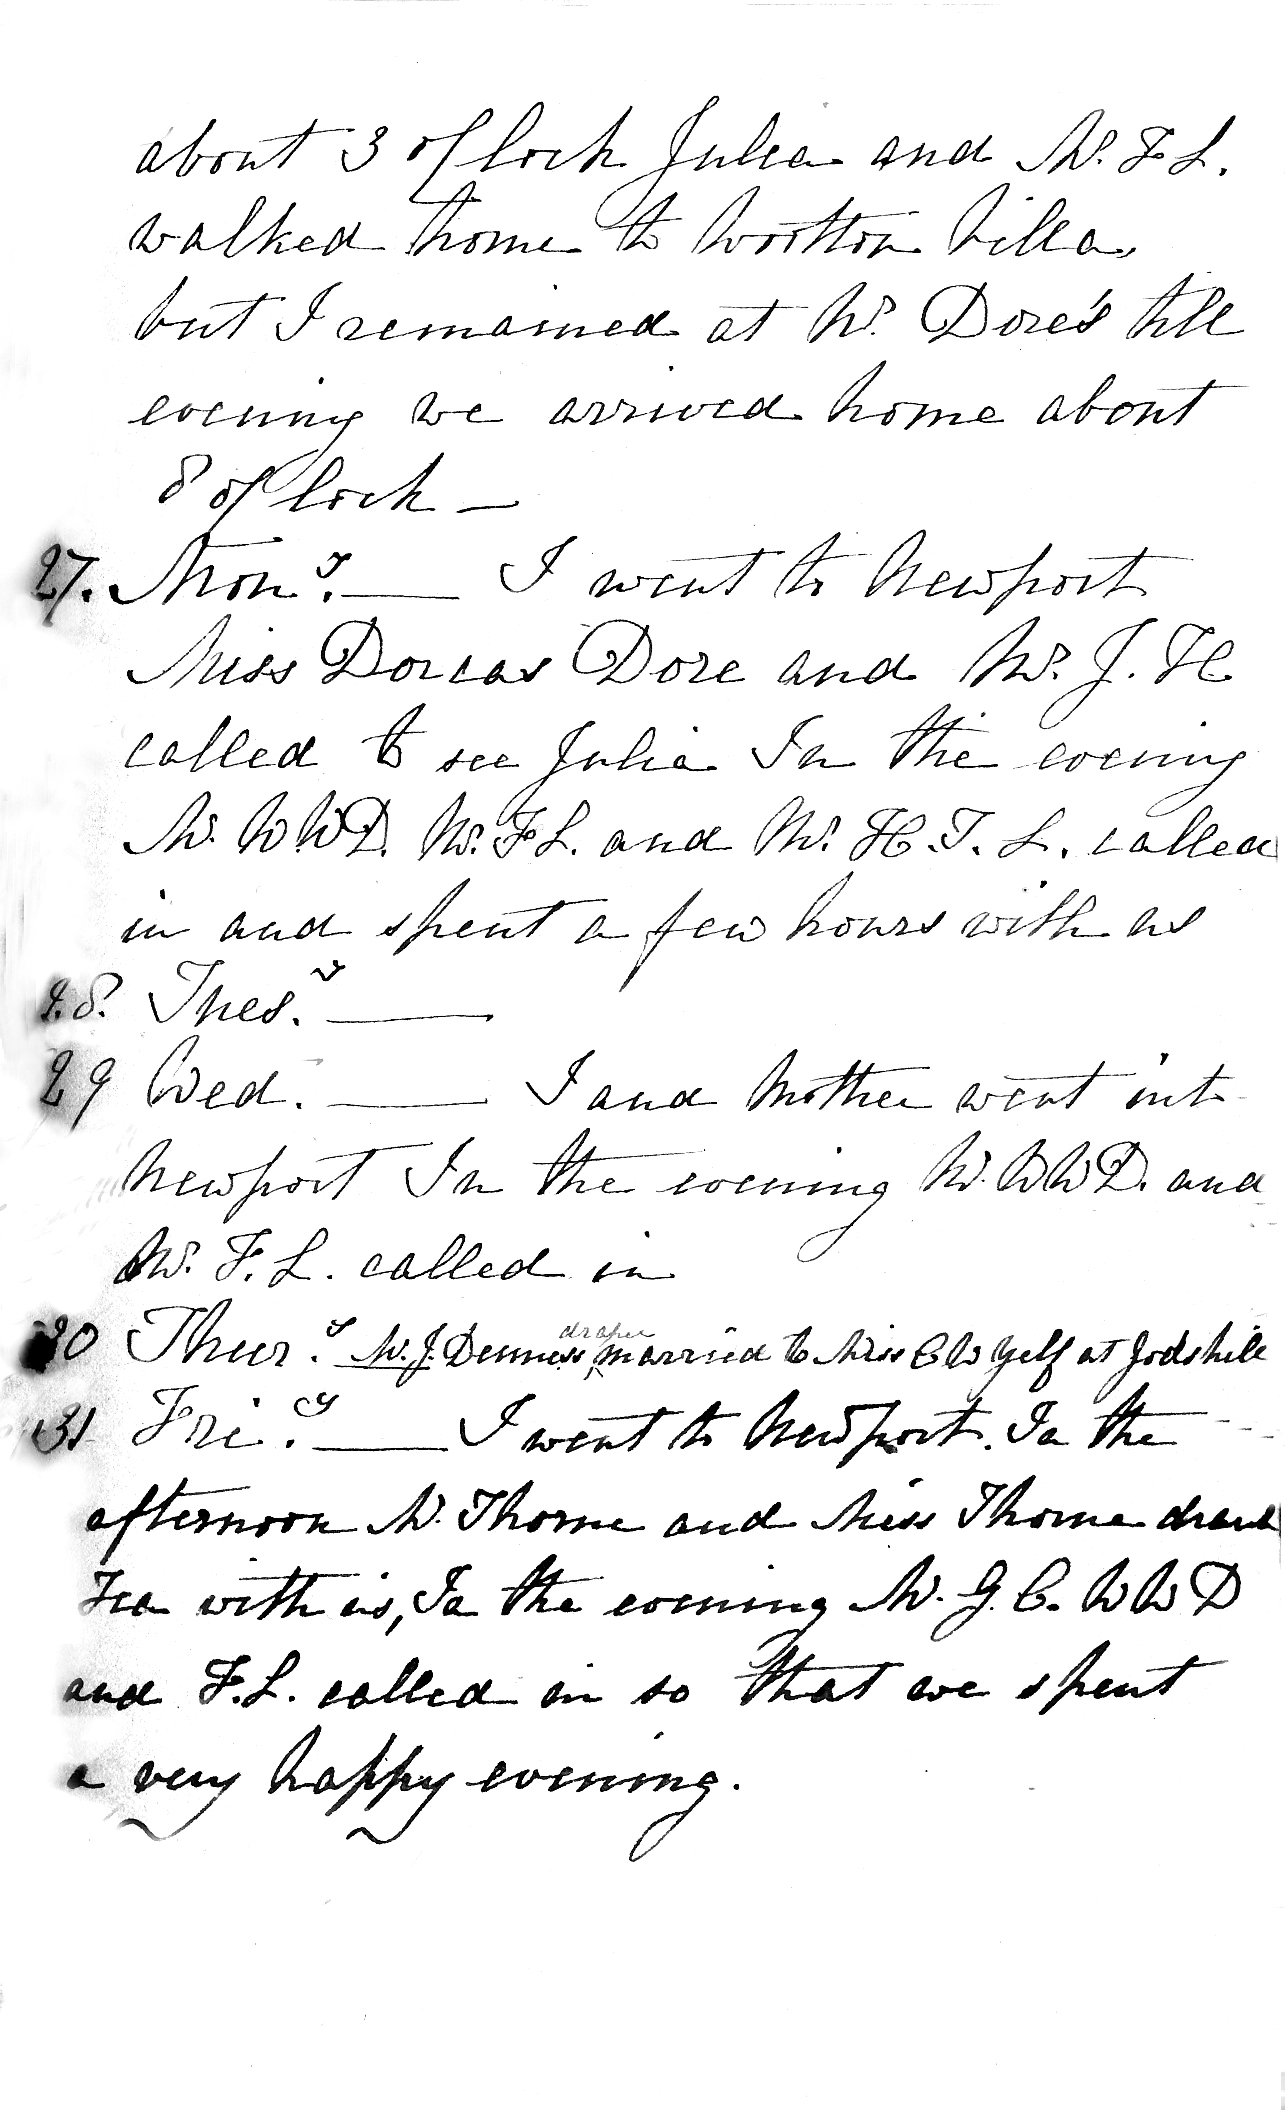 about 3 of lock Julia and Mr. F L.
walked home to Wootton Villa
but I remained at Mr. Dore's till
evening we arrived home about
8 of lock —
27. Mon.y — I went to Newport
Miss Dorcas Dore and Mr. J. H
called to see Julia In the evening
Mr. W W D. Mr. F L. and Mr. H. T. L. called
in and spent a few hours with us
28. Tues.y —
29 Wed. — I and Mother went into
Newport In the evening Mr. W W D. and
Mr. F. L. called in
30 Thur.y Mr. J. Denness, draper married to Miss C W Yelf at Godshill
31 Fri.ay — I went to Newport. In the
afternoon Mr. Thorne and Miss Thorne drank
Tea with us, In the evening Mr. G. C. W W D
and F. L. called in so that we spent
a very happy evening.